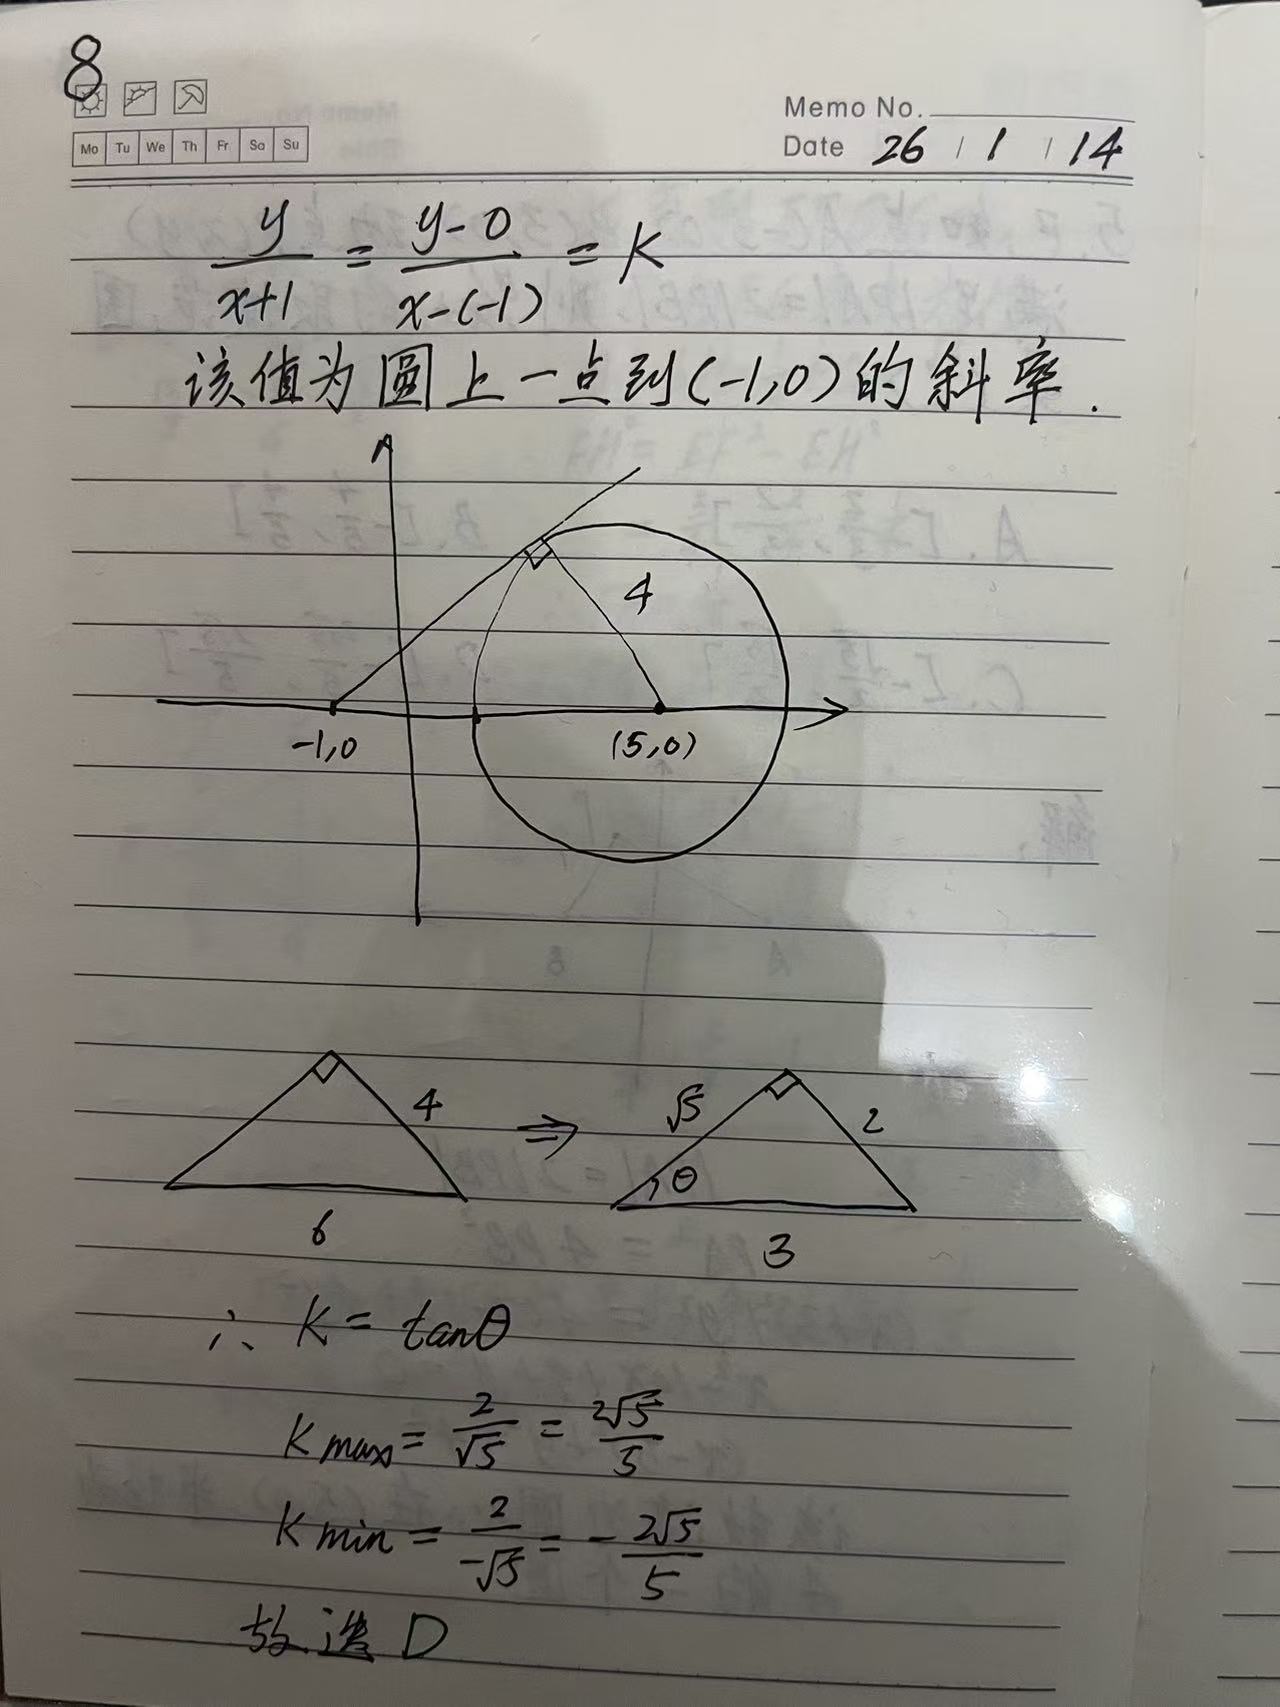 8
Memo No.
Mo Tu We Th Fr Sa Su
Date 26 / 1 / 14
y/(x+1) = (y-0)/(x-(-1)) = K
该值为圓上一点到(-1,0)的斜率.
4
-1,0
(5,0)
4
6
⇒
√5
2
θ
3
∴ K = tanθ
K max = 2/√5 = 2√5/5
K min = 2/-√5 = -2√5/5
故选 D